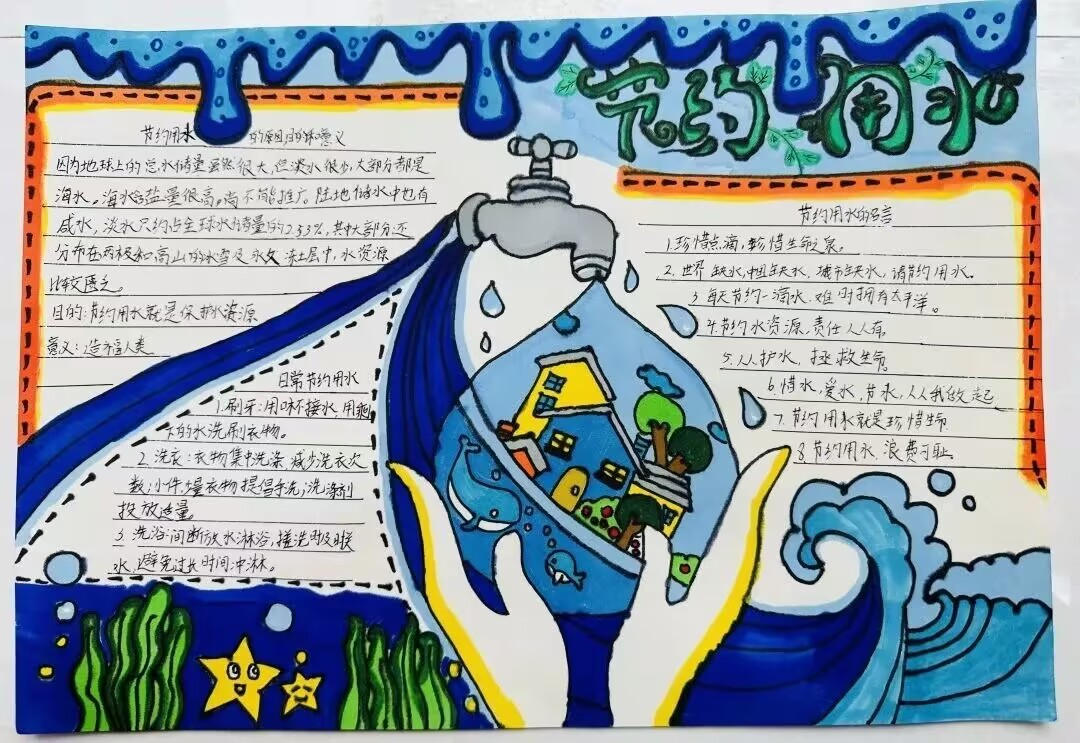 节约用水
节约用水 的原因目的和意义
因为地球上的总水储量虽然很大,但淡水很少,大部分都是
海水。海水含盐量很高,尚不能推广。陆地储水中也有
咸水,淡水只约占全球水储量的2.53%,其中大部分还
分布在两极和高山的冰雪及永久冻土层中,水资源
比较匮乏。
目的:节约用水就是保护水资源
意义:造福人类
日常节约用水
1.刷牙:用杯接水,用剩
下的水洗刷衣物。
2.洗衣:衣物集中洗涤 减少洗衣次
数;小件、少量衣物提倡手洗;洗涤剂
投放适量。
3.洗浴:间断放水淋浴,搓洗时及时关
水,避免过长时间冲淋。
节约用水的名言
1.珍惜点滴,珍惜生命之泉。
2.世界缺水,中国缺水,城市缺水,请节约用水。
3.每天节约一滴水,难时拥有太平洋。
4.节约水资源,责任人人有。
5.人人护水,拯救生命。
6.惜水,爱水,节水,从我做起
7.节约用水就是珍惜生命
8.节约用水,浪费可耻